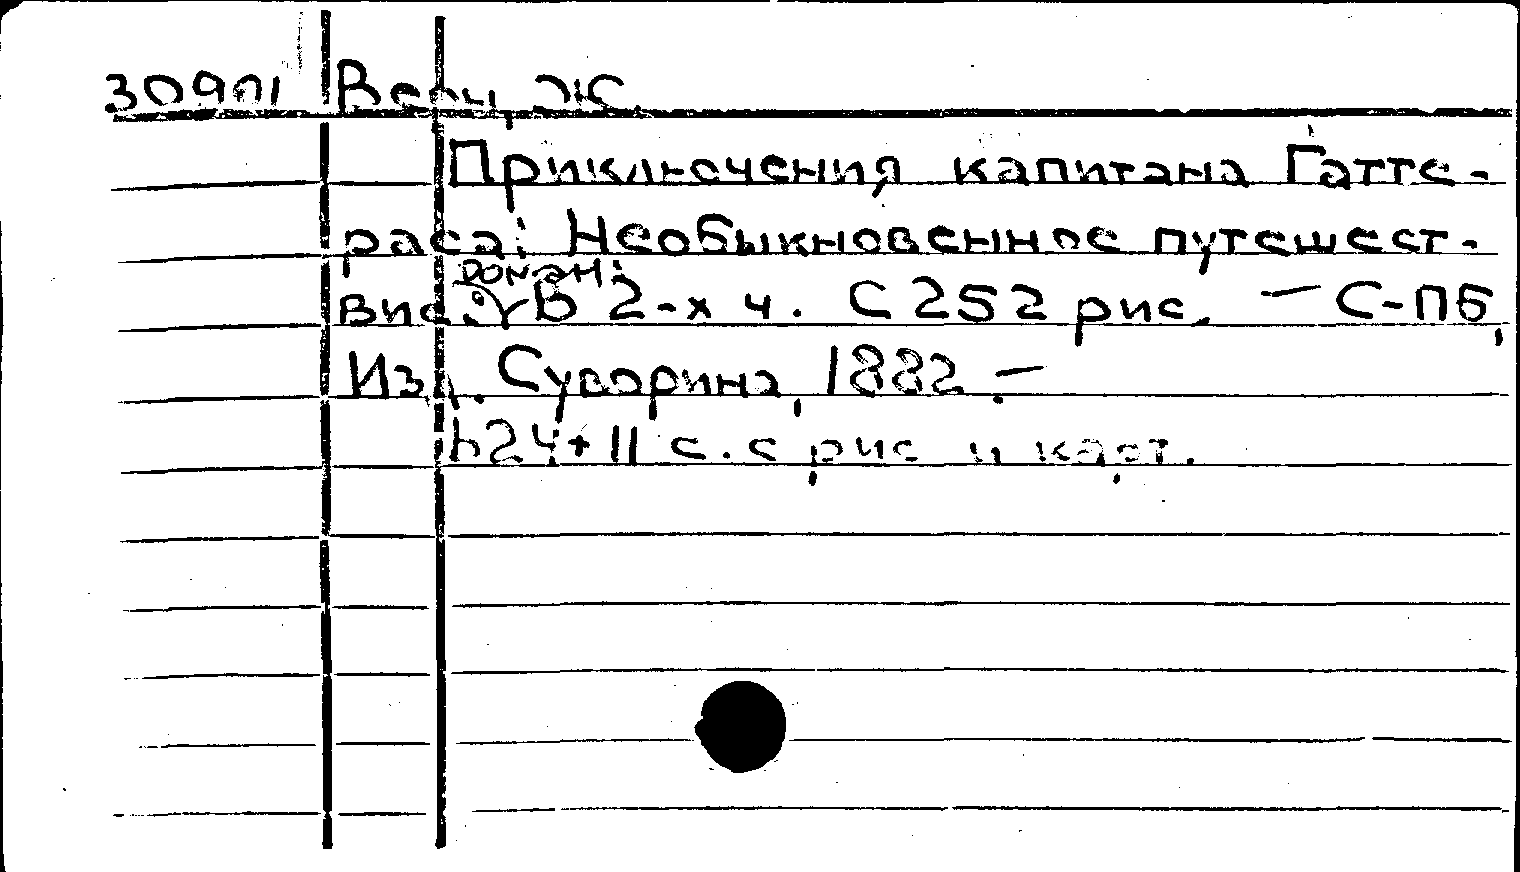 30901 Верн, Ж.
Приключения капитана Гатте-
раса: Необыкновенное путешест-
роман:
вие. В 2-х ч. С 252 рис. — С-Пб,
Изд. Суворина, 1882. —
624+II с. с рис. и карт.